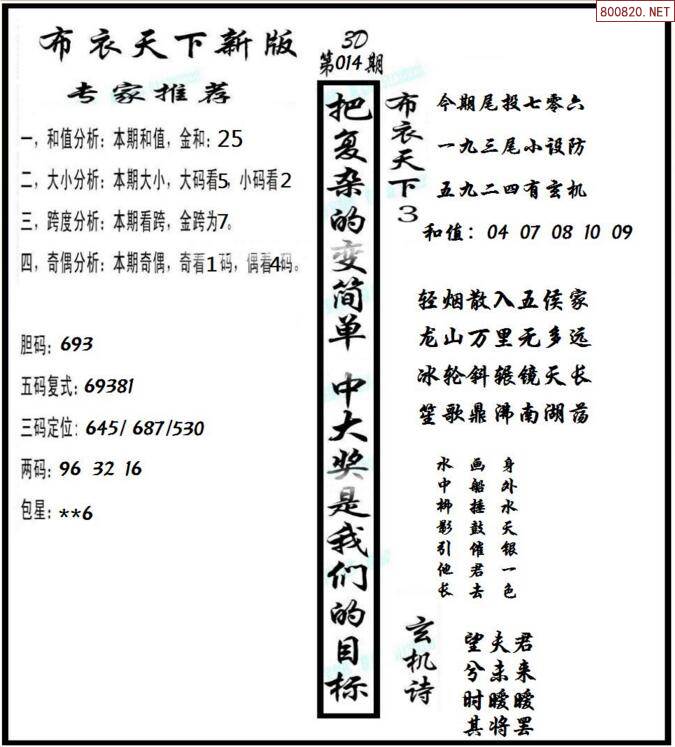 800820.NET
布衣天下新版
专家推荐
一，和值分析：本期和值，金和：25
二，大小分析：本期大小，大码看5，小码看2
三，跨度分析：本期看跨，金跨为7。
四，奇偶分析：本期奇偶，奇看1码，偶看4码。
胆码：693
五码复式：69381
三码定位：645/ 687/530
两码：96 32 16
包星：**6
3D
第014期
把复杂的变简单 中大奖是我们的目标
布衣天下3
今期尾投七零六
一九三尾小设防
五九二四有玄机
和值：04 07 08 10 09
轻烟散入五侯家
龙山万里无多远
冰轮斜辗镜天长
笙歌鼎沸南湖荡
身外水天银一色
画船捶鼓催君去
水中柳影引他长
玄机诗
望夫君
兮未来
时暧暧
其将罢